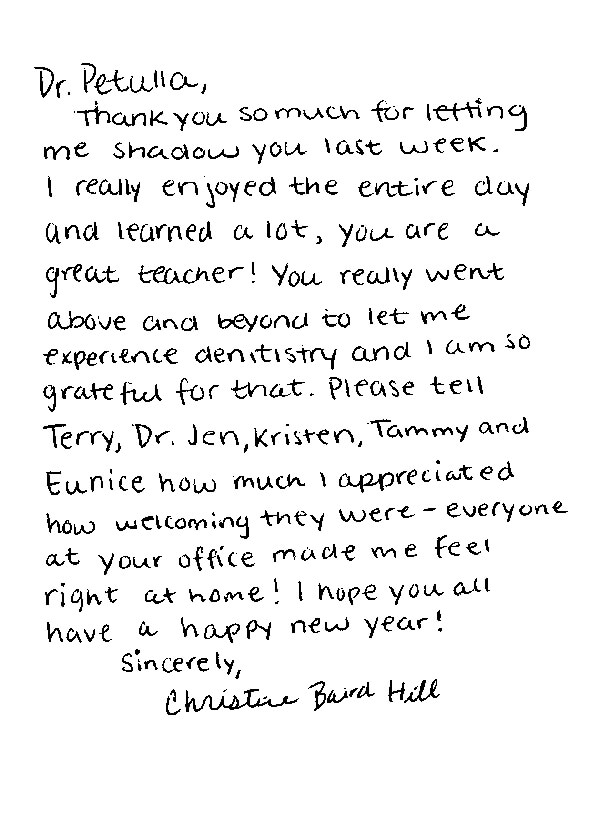 Dr. Petulla,
Thank you so much for letting
me shadow you last week.
I really enjoyed the entire day
and learned a lot, you are a
great teacher! You really went
above and beyond to let me
experience dentistry and I am so
grateful for that. Please tell
Terry, Dr. Jen, Kristen, Tammy and
Eunice how much I appreciated
how welcoming they were - everyone
at your office made me feel
right at home! I hope you all
have a happy new year!
Sincerely,
Christine Baird Hill